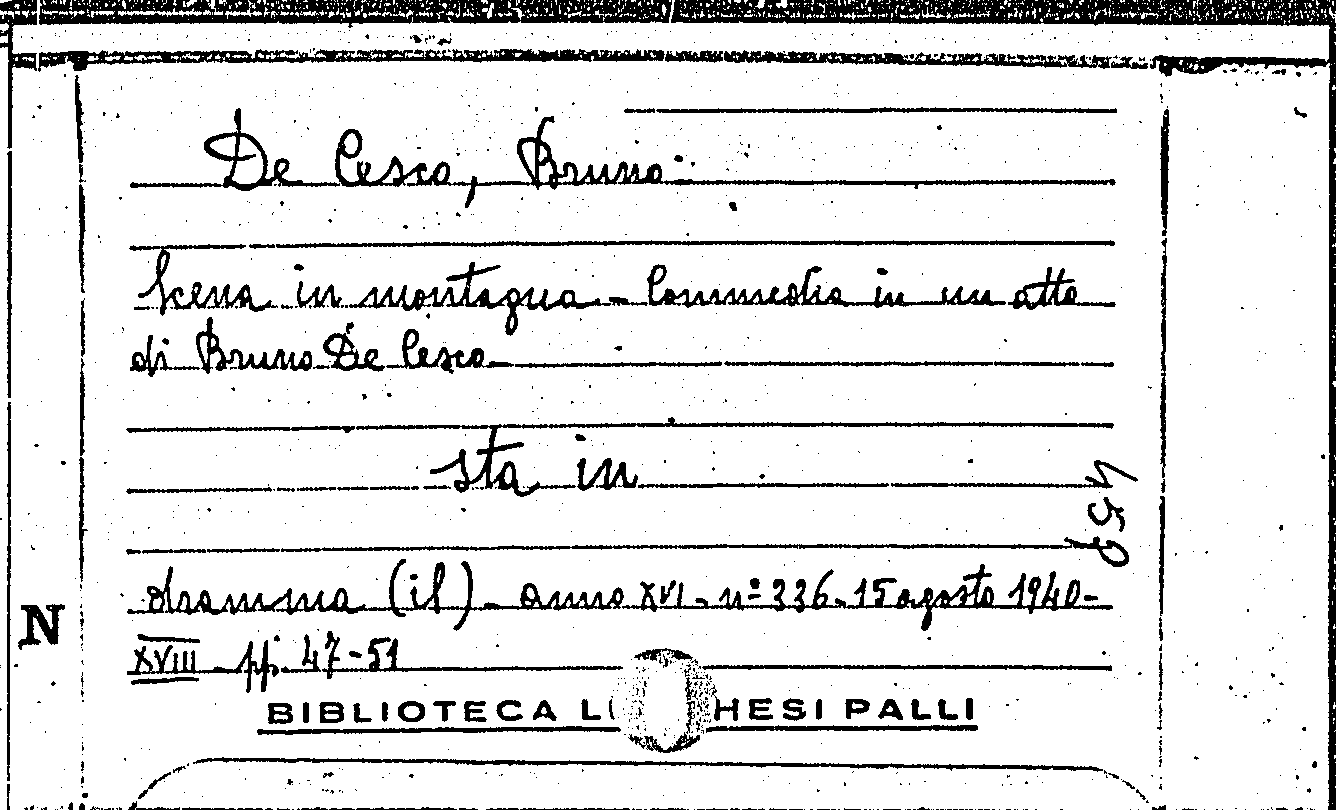 De Cesco, Bruno:
Scena in montagna - Commedia in un atto
di Bruno De Cesco -
sta in
459
dramma (il) - anno XVI - nº 336 - 15 agosto 1940 -
XVIII - pp. 47-51
N
BIBLIOTECA L HESI PALLI